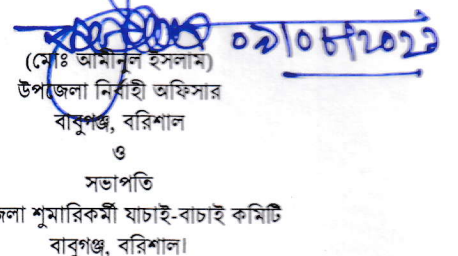 (মোঃ আমীনুল ইসলাম)
উপজেলা নির্বাহী অফিসার
বাবুগঞ্জ, বরিশাল
ও
সভাপতি
জলা শুমারিকর্মী যাচাই-বাচাই কমিটি
বাবুগঞ্জ, বরিশাল।